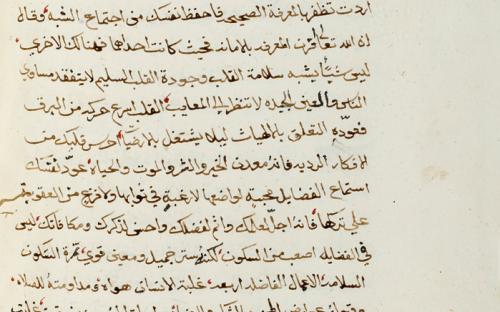 اردت تظفر بالمعرفة الصحيحه فاحفظ نفسك من اجتماع الشبه وقال
ان الله تعالى قرن المعرفه بالامانه فحيث كانت احداها فهنالك الاخري
ليس شيئا يشبه سلامة القلب وجودة القلب السليم لا يتفقد مساوي
الناس والعين الجيده لا تنظر الى المعايب القلب اسرع حركه من البرق
فعوده التعلق بالالهيات ليلا يشتغل بالارضيات احرس قلبك من
الافكار الرديه فانه معدن الخير والشر والموت والحياه عود نفسك
استماع الفضايل محبة لواضعها لا رغبة في ثوابها ولا تزع من العقوبة
علي تركها فانه اجل لعملك واتم لفضلك واحسن لذكرك ومكافاتك ليس
في الفضيله اصعب من السكون لكنه ستر جميل ومعنى قوي ثمرة السكون
السلامه الاعمال الفاضله اربعه غلبة الانسان هواه ومداومته للصلاه